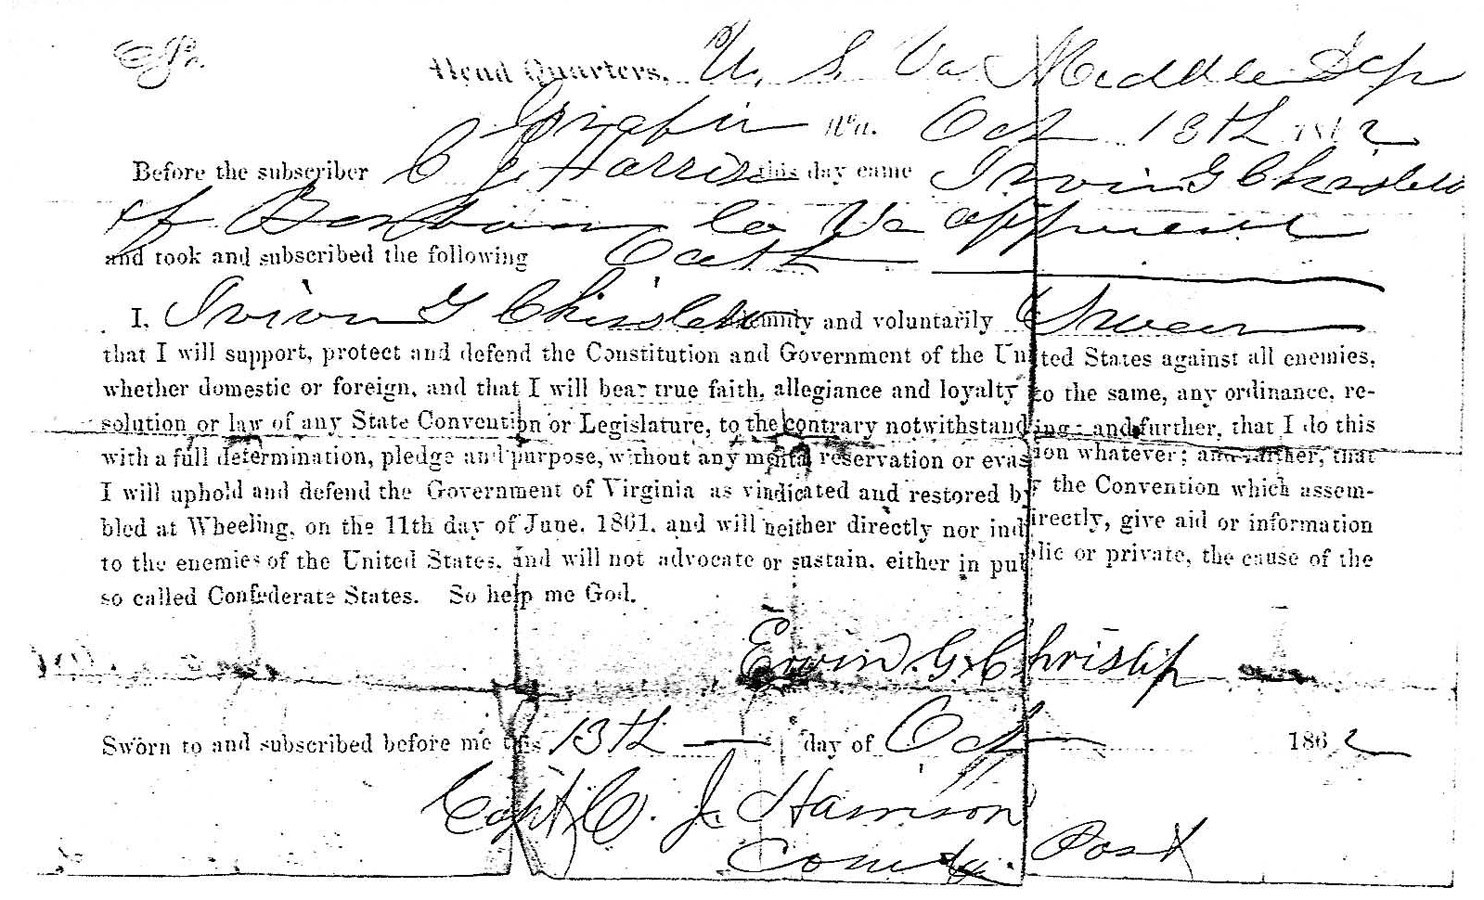 No.
Head Quarters, U. S. Va Middle Dep
Va. Oct 13th 1862
Before the subscriber C J. Harrison this day came Irvin G Chislett
of Co Va
and took and subscribed the following Oath
I, Irvin G Chislett solemnly and voluntarily Swear
that I will support, protect and defend the Constitution and Government of the United States against all enemies,
whether domestic or foreign, and that I will bear true faith, allegiance and loyalty to the same, any ordinance, re-
solution or law of any State Convention or Legislature, to the contrary notwithstanding; and further, that I do this
with a full determination, pledge and purpose, without any mental reservation or evasion whatever; and further, that
I will uphold and defend the Government of Virginia as vindicated and restored by the Convention which assem-
bled at Wheeling, on the 11th day of June, 1861, and will neither directly nor indirectly, give aid or information
to the enemies of the United States, and will not advocate or sustain, either in public or private, the cause of the
so called Confederate States. So help me God.
Erwin. G. Chrislip
Sworn to and subscribed before me this 13th day of Oct 1862
Capt C. J. Harrison
Comdg. Post